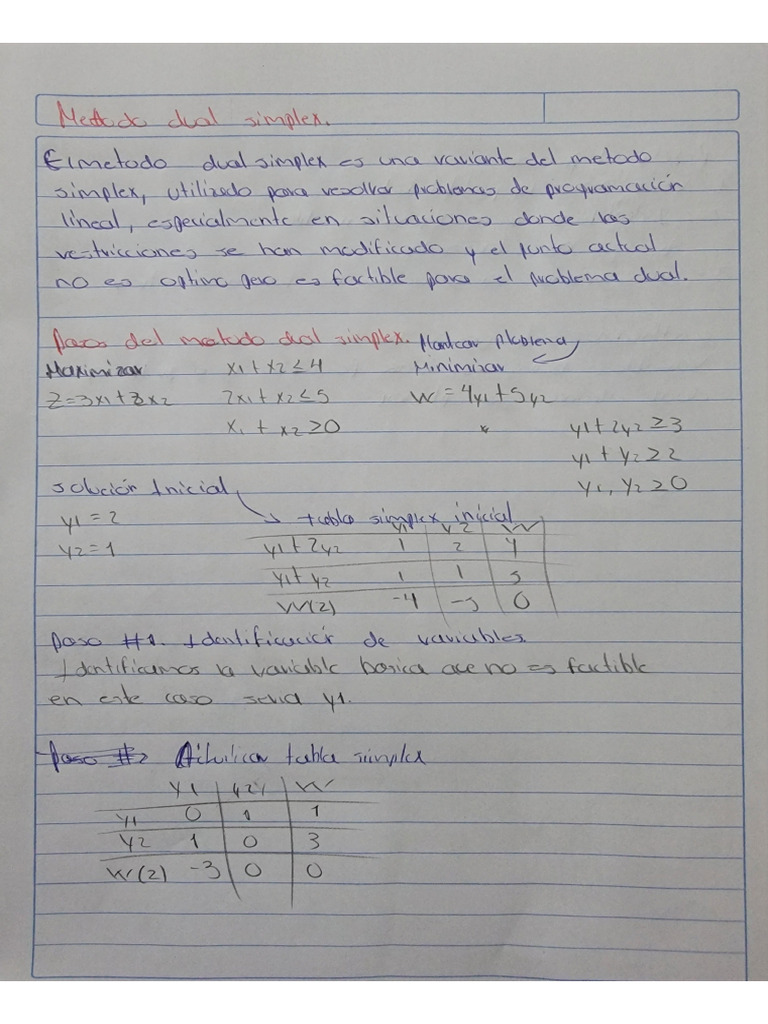 Metodo dual simplex.
El metodo dual simplex es una variante del metodo
simplex, utilizado para resolver problemas de programación
lineal, especialmente en situaciones donde las
restricciones se han modificado y el punto actual
no es optimo pero es factible para el problema dual.
Pasos del metodo dual simplex. Plantear Problema
Maximizar x1 + x2 ≤ 4 Minimizar
Z=3x1+2x2 2x1+x2 ≤ 5 W = 4y1+5y2
x1 + x2 ≥0 y1+2y2 ≥3
y1 + y2 ≥2
y1, y2 ≥0
solución Inicial
y1 = 2
y2=1
tabla simplex inicial
y1 y2 W
y1+2y2 1 2 4
y1+y2 1 1 5
W(2) -4 -5 0
Paso #1. Identificación de variables
Identificamos la variable basica que no es factible
en este caso seria y1.
Paso #2 tabla simplex
y1 y2 W
y1 0 1 1
y2 1 0 3
W(2) -3 0 0